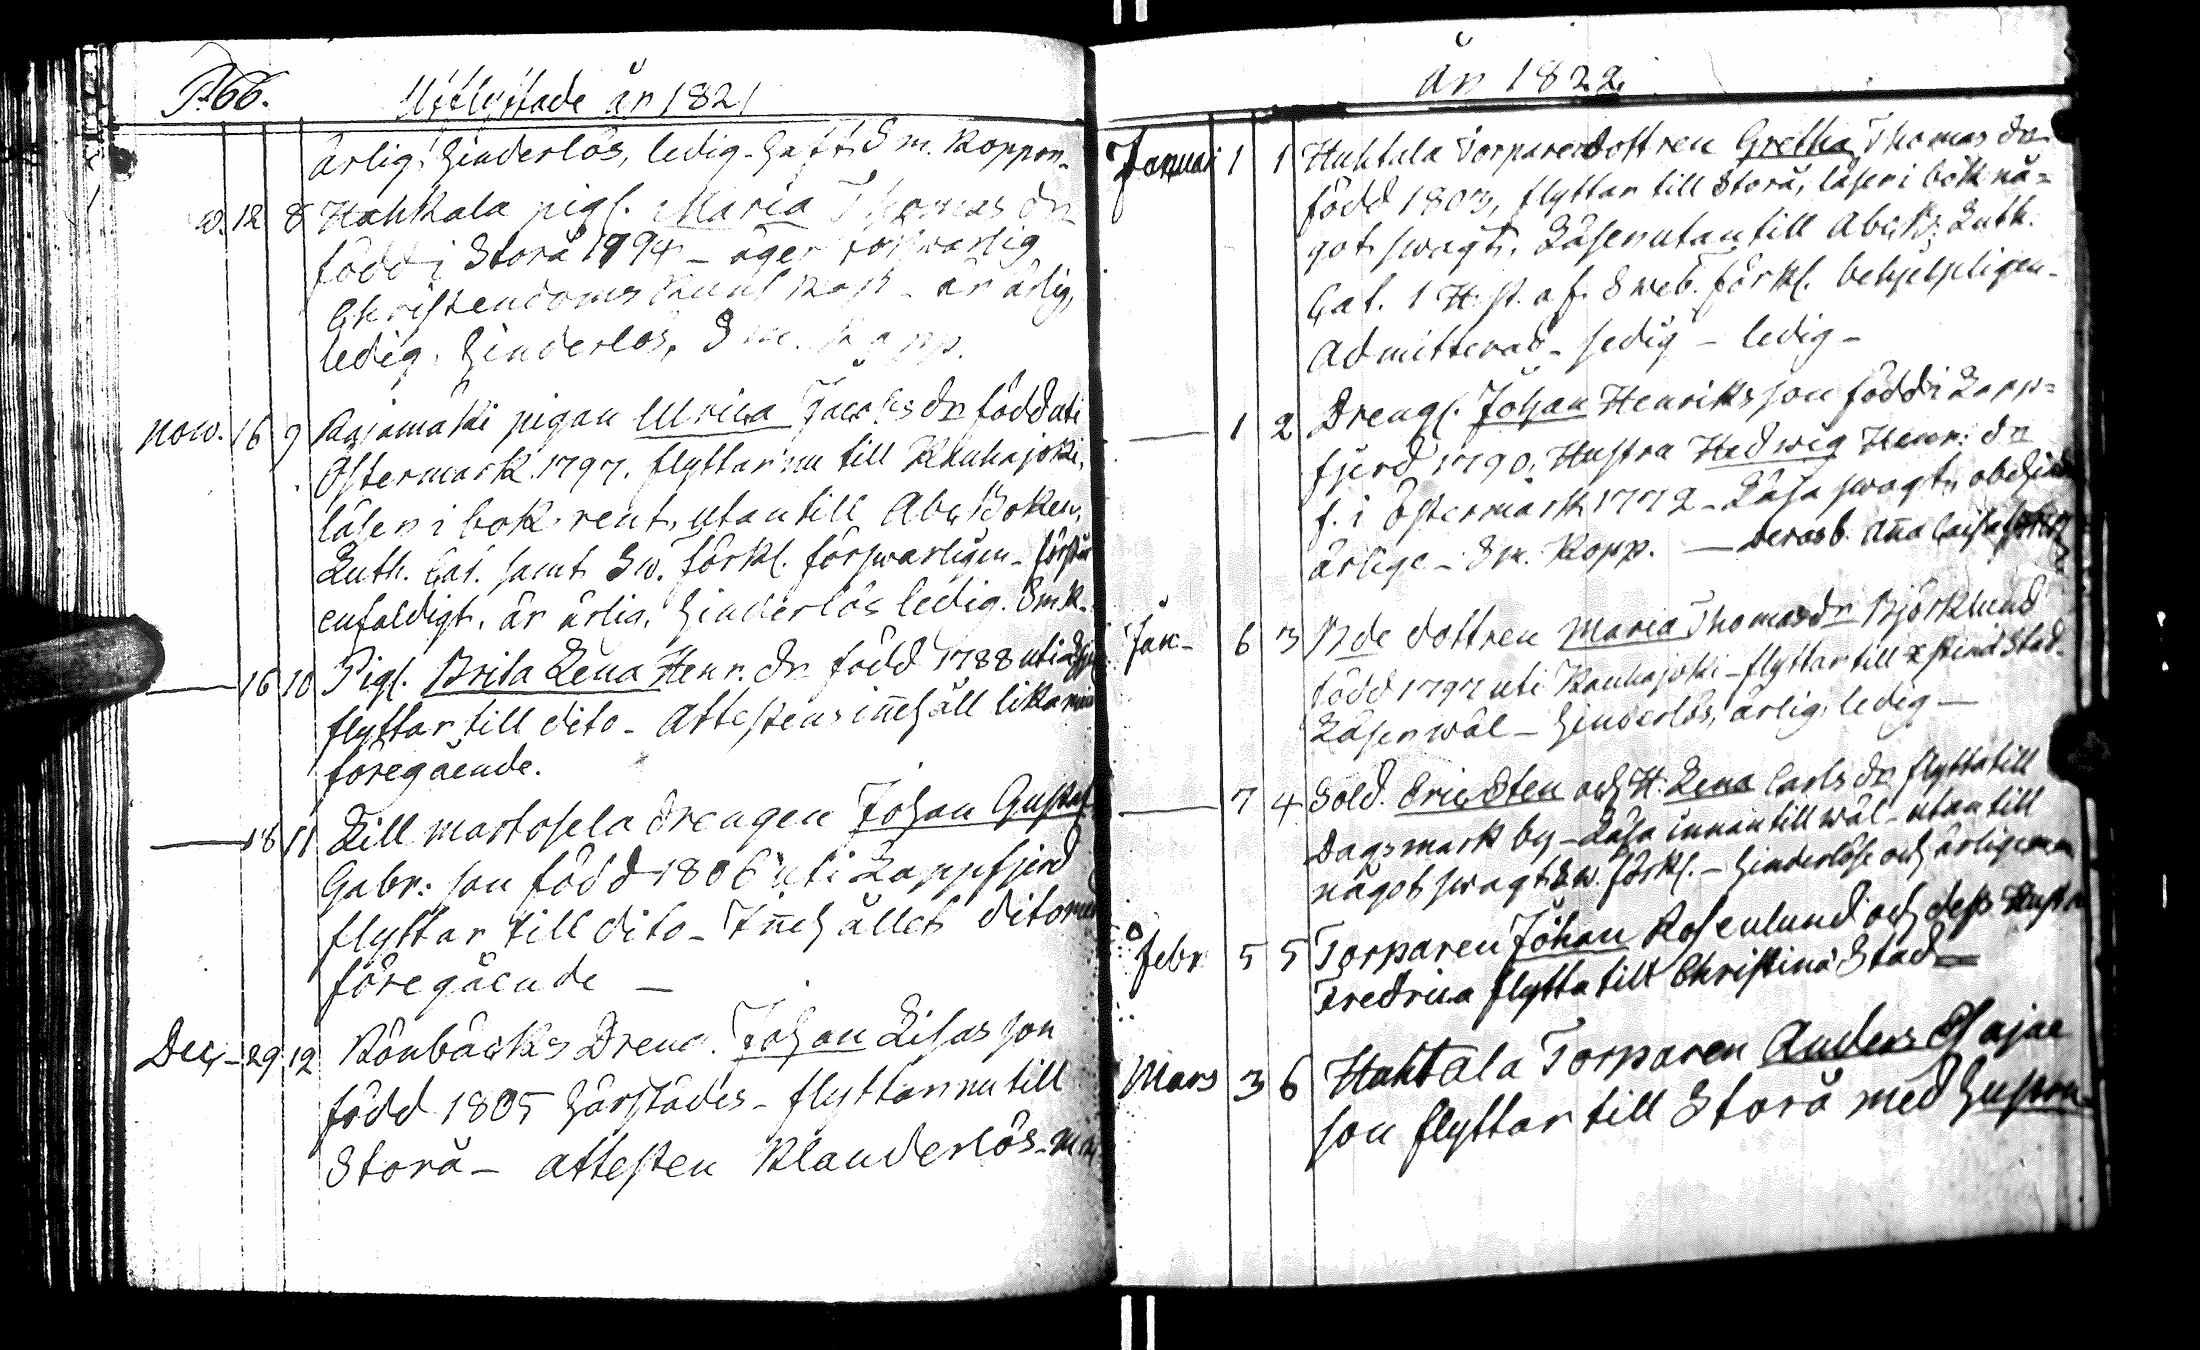 P. 66. Utflyttade år 1821
ärlig, hinderlös, ledig. haft Sm. Koppor.
12 8 Hahkala pig. Maria Thomas dr
född i Storå 1794 - äger förswarlig
Christendoms Kunskap - är ärlig,
ledig, hinderlös, Sm. Kopp.
Now. 16 9 Rajamäki pigan Ulrica Jacobs dr född uti
Östermark 1797. flyttar nu till Kauhajoki,
läser i bok rent, utantill Abc Boken,
Luth. Cat. samt Sw. förkl. förswarligen - förstår
enfaldigt, är ärlig, hinderlös ledig. Sm. K.
— 16 10 Pig. Brita Lena Henr. dr född 1788 uti
flyttar till dito - Attestens innehåll lika med
föregående.
— 18 11 Lill martosela drengen Johan Gustaf
Gabr: son född 1806 uti Lappfjerd
flyttar till dito - Innehållet dito med
föregående —
Dec. - 29 12 Rönbäcks Dreng. Johan Lisas son
född 1805 härstädes - flyttar nu till
Storå - attesten Klanderlös -
År 1822.
Januari 1 1 Huhtala Torparedottren Gretha Thomas dr
född 1803, flyttar till Storå, läser i bok nå=
got swagt. Läser utantill Abc B; Luth.
Cat. 1 H. st. af Sweb. förkl. behjelpligen -
Admitterad - sedig - ledig -
— 1 2 Drengl. Johan Henriksson född i Lapp=
fjerd 1790, Hustra Hedwig Henr: dr
f. i Östermark 1772 - Läsa swagt,
ärlige - Sm. Kopp. — deras b. Anna Caisa
Jan - 6 3 Bde dottren Maria Thomasdr Björklund
född 1797 uti Kauhajoki - flyttar till Xstinæ Stad.
Läser wäl - hinderlös, ärlig, ledig —
— 7 4 Sold. Eric Sten och H: Lena Carls dr flytta till
Dagsmark by - Läsa innantill wäl - utantill
något swagt Sw. förkl. - hinderlöse och ärlige
Febr. 5 5 Torparen Johan Rosenlund och dess Hustra
Fredrica flytta till Christinæ Stad —
Mars 3 6 Huhtala Torparen Anders Esajæ
son flyttar till Storå med hustru